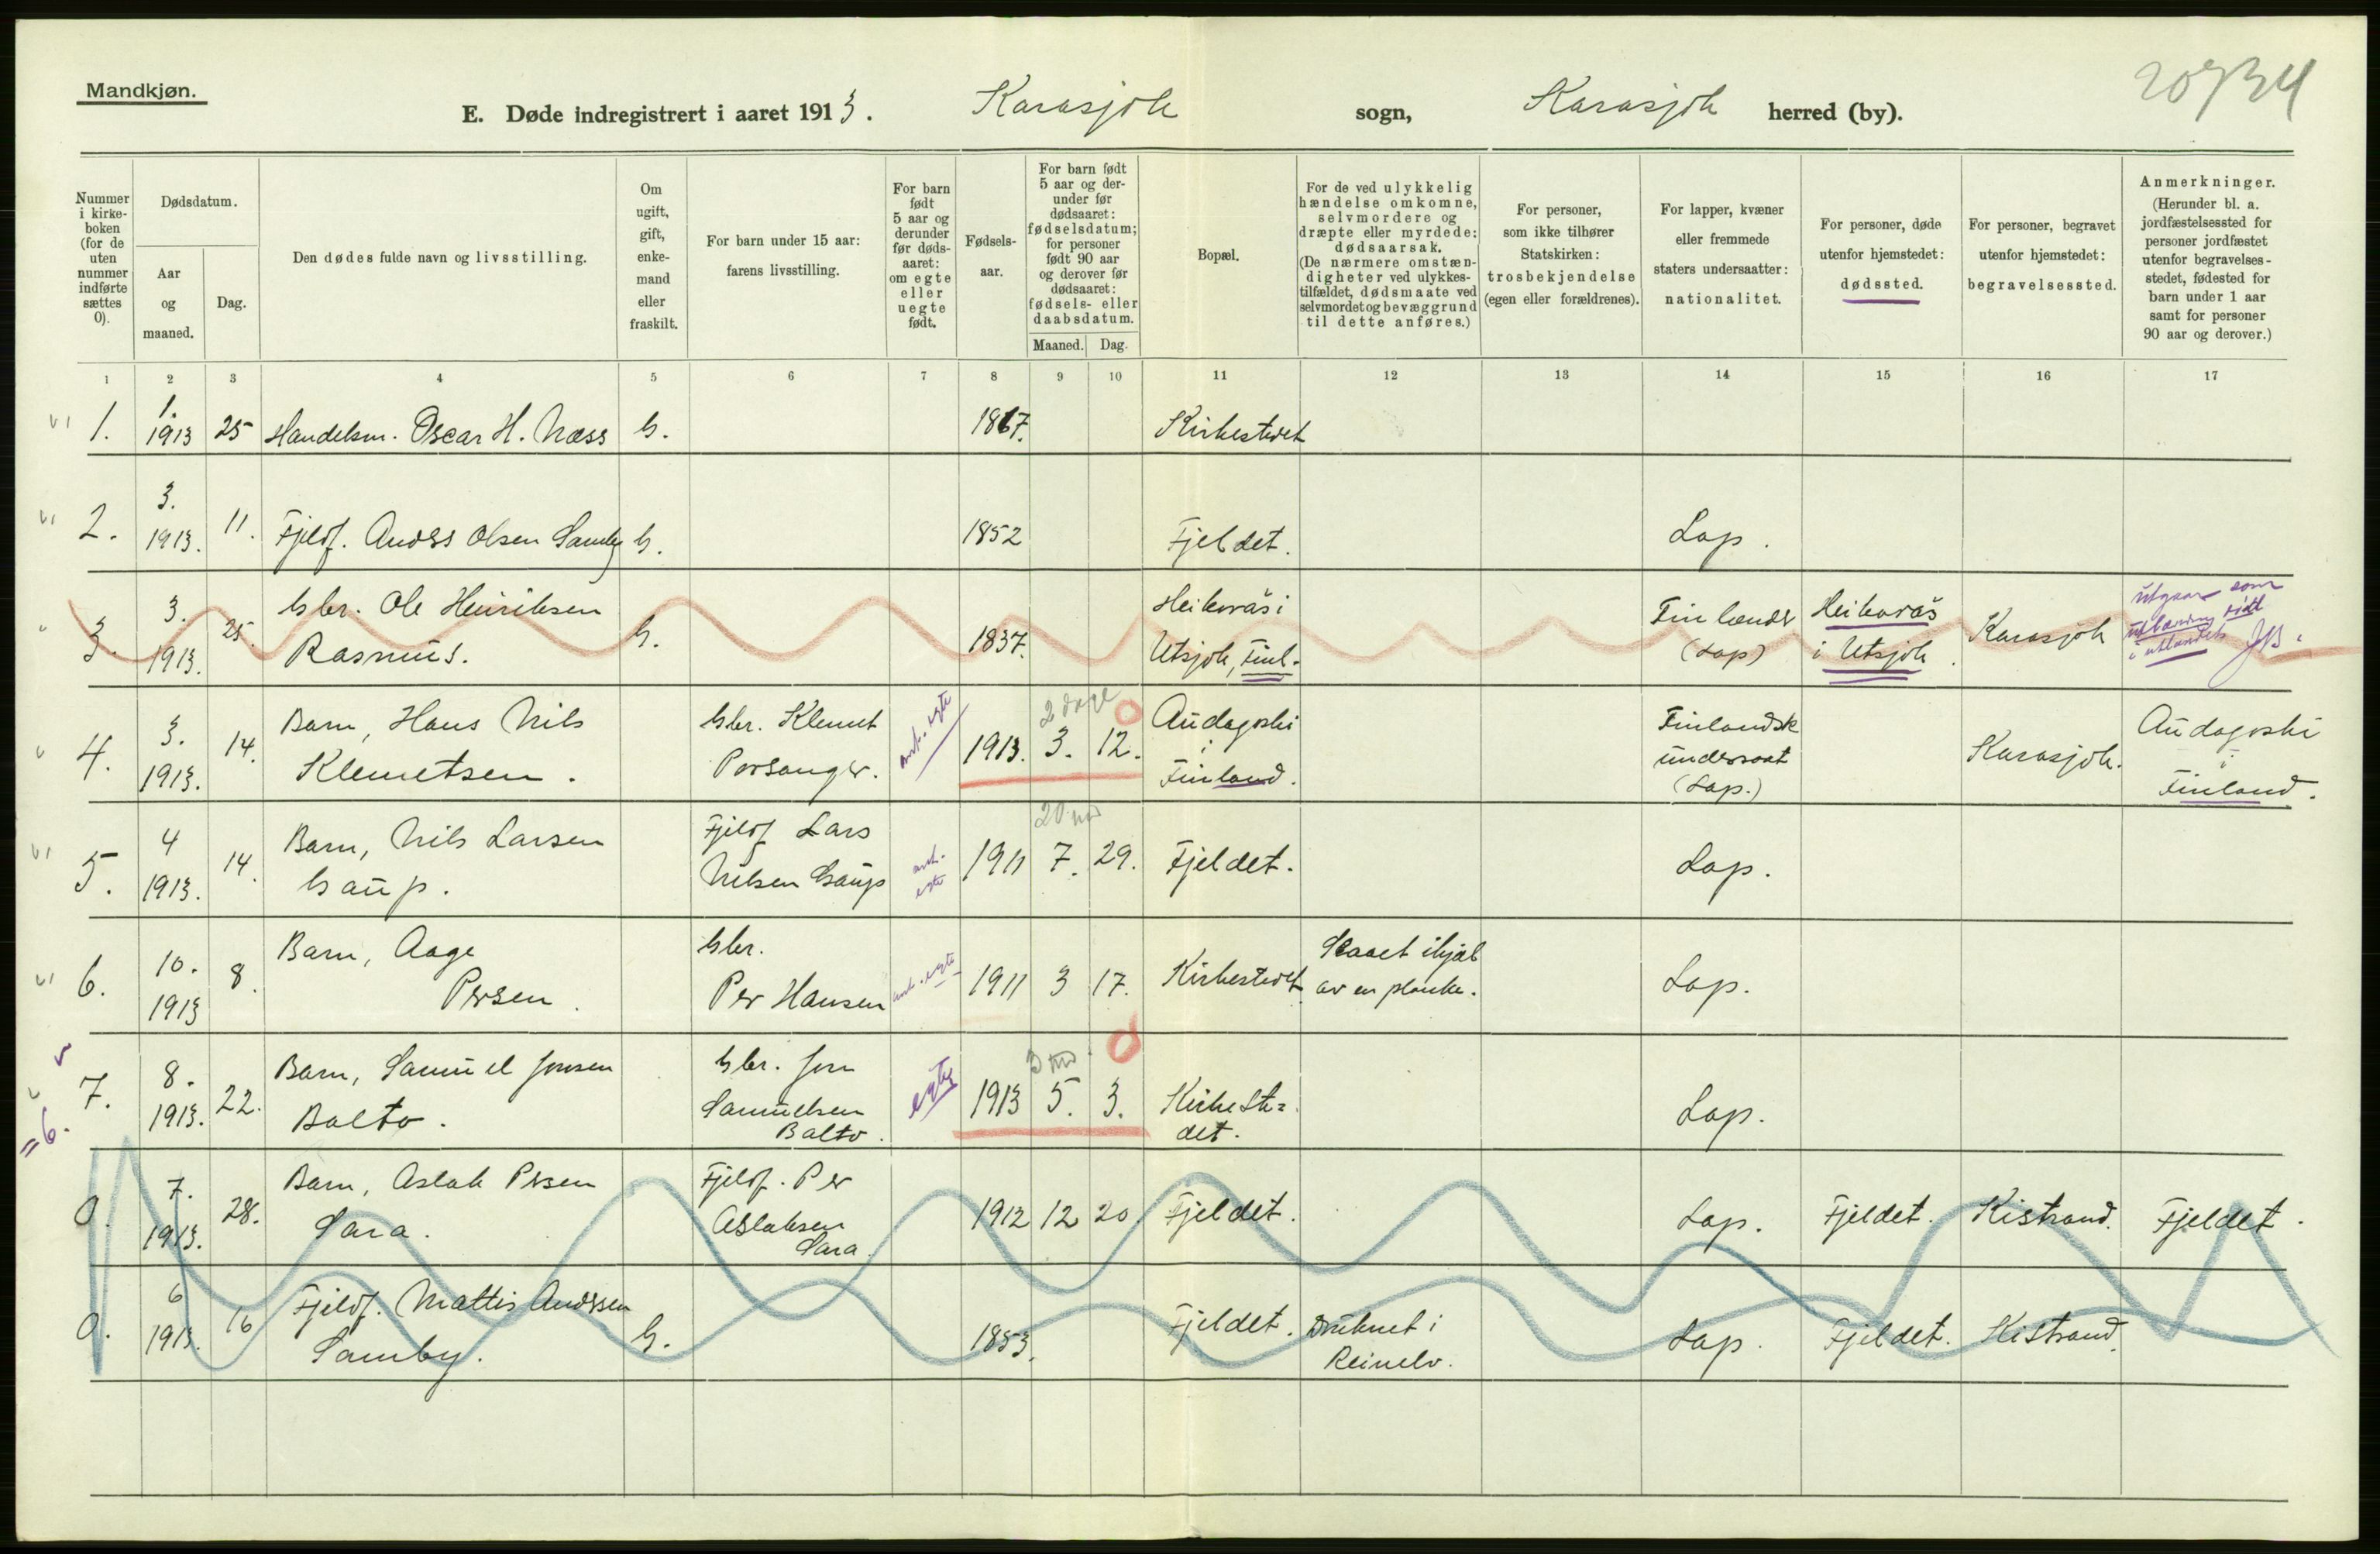 Mandkjøn.
20734
E. Døde indregistrert i aaret 1913. Karasjok sogn, Karasjok herred (by).
Nummer i kirke-boken (for de uten nummer indførte sættes 0).
Dødsdatum.
Aar og maaned.
Dag.
Den dødes fulde navn og livsstilling.
Om ugift, gift, enke-mand eller fraskilt.
For barn under 15 aar: farens livsstilling.
For barn født 5 aar og derunder før døds-aaret: om egte eller uegte født.
Fødsels-aar.
For barn født 5 aar og der-under før dødsaaret: fødselsdatum; for personer født 90 aar og derover før dødsaaret: fødsels- eller daabsdatum.
Maaned. Dag.
Bopæl.
For de ved ulykkelig hændelse omkomne, selvmordere og dræpte eller myrdede: dødsaarsak. (De nærmere omstæn-digheter ved ulykkes-tilfældet, dødsmaate ved selvmordet og bevæggrund til dette anføres.)
For personer, som ikke tilhører Statskirken: trosbekjendelse (egen eller forældrenes).
For lapper, kvæner eller fremmede staters undersaatter: nationalitet.
For personer, døde utenfor hjemstedet: dødssted.
For personer, begravet utenfor hjemstedet: begravelsessted.
Anmerkninger. (Herunder bl. a. jordfæstelsessted for personer jordfæstet utenfor begravelses-stedet, fødested for barn under 1 aar samt for personer 90 aar og derover.)
1 2 3 4 5 6 7 8 9 10 11 12 13 14 15 16 17
1. 1. 1913 25 Handelsm. Oscar H. Næss G. 1867. Kirkestedet
2. 3. 1913. 11. Fjeldf. Anders Olsen Somby G. 1852 Fjeldet. Lap.
3. 3. 1913. 25. Gbr. Ole Henriksen Rasmus. G. 1837. Heikoraš i Utsjok, Finl. Finlænder (Lap) Heikoraš i Utsjok. Karasjok utgaar som utlænding død i utlandet JB.
4. 3. 1913. 14. Barn, Hans Nils Klemetsen. Gbr. Klemet Porsanger. ant. egte 1913. 3. 12. 2 dage Audagoski i Finland. Finlandsk undersaat (Lap.) Karasjok. Audagoski i Finland.
5. 4 1913. 14. Barn, Nils Larsen Gaup. Fjeldf Lars Nilsen Gaup ant. egte 1911 7. 29. 20 md Fjeldet. Lap.
6. 10. 1913 8. Barn, Aage Persen. Gbr. Per Hansen ant. egte 1911 3 17. Kirkestedet Slaaet ihjæl av en planke. Lap.
7. =6. 8. 1913. 22. Barn, Samuel Jonsen Balto. Gbr. Jon Samuelsen Balto. egte 1913 5. 3. 3 md Kirkeste=det. Lap.
0. 7. 1913. 28. Barn, Aslak Persen Sara. Fjeldf. Per Aslaksen Sara. 1912 12 20. Fjeldet. Lap. Fjeldet. Kistrand. Fjeldet.
0. 6 1913. 16 Fjeldf. Mattis Anderssen Somby. G. 1853. Fjeldet. Druknet i Reinelv. Lap. Fjeldet. Kistrand.